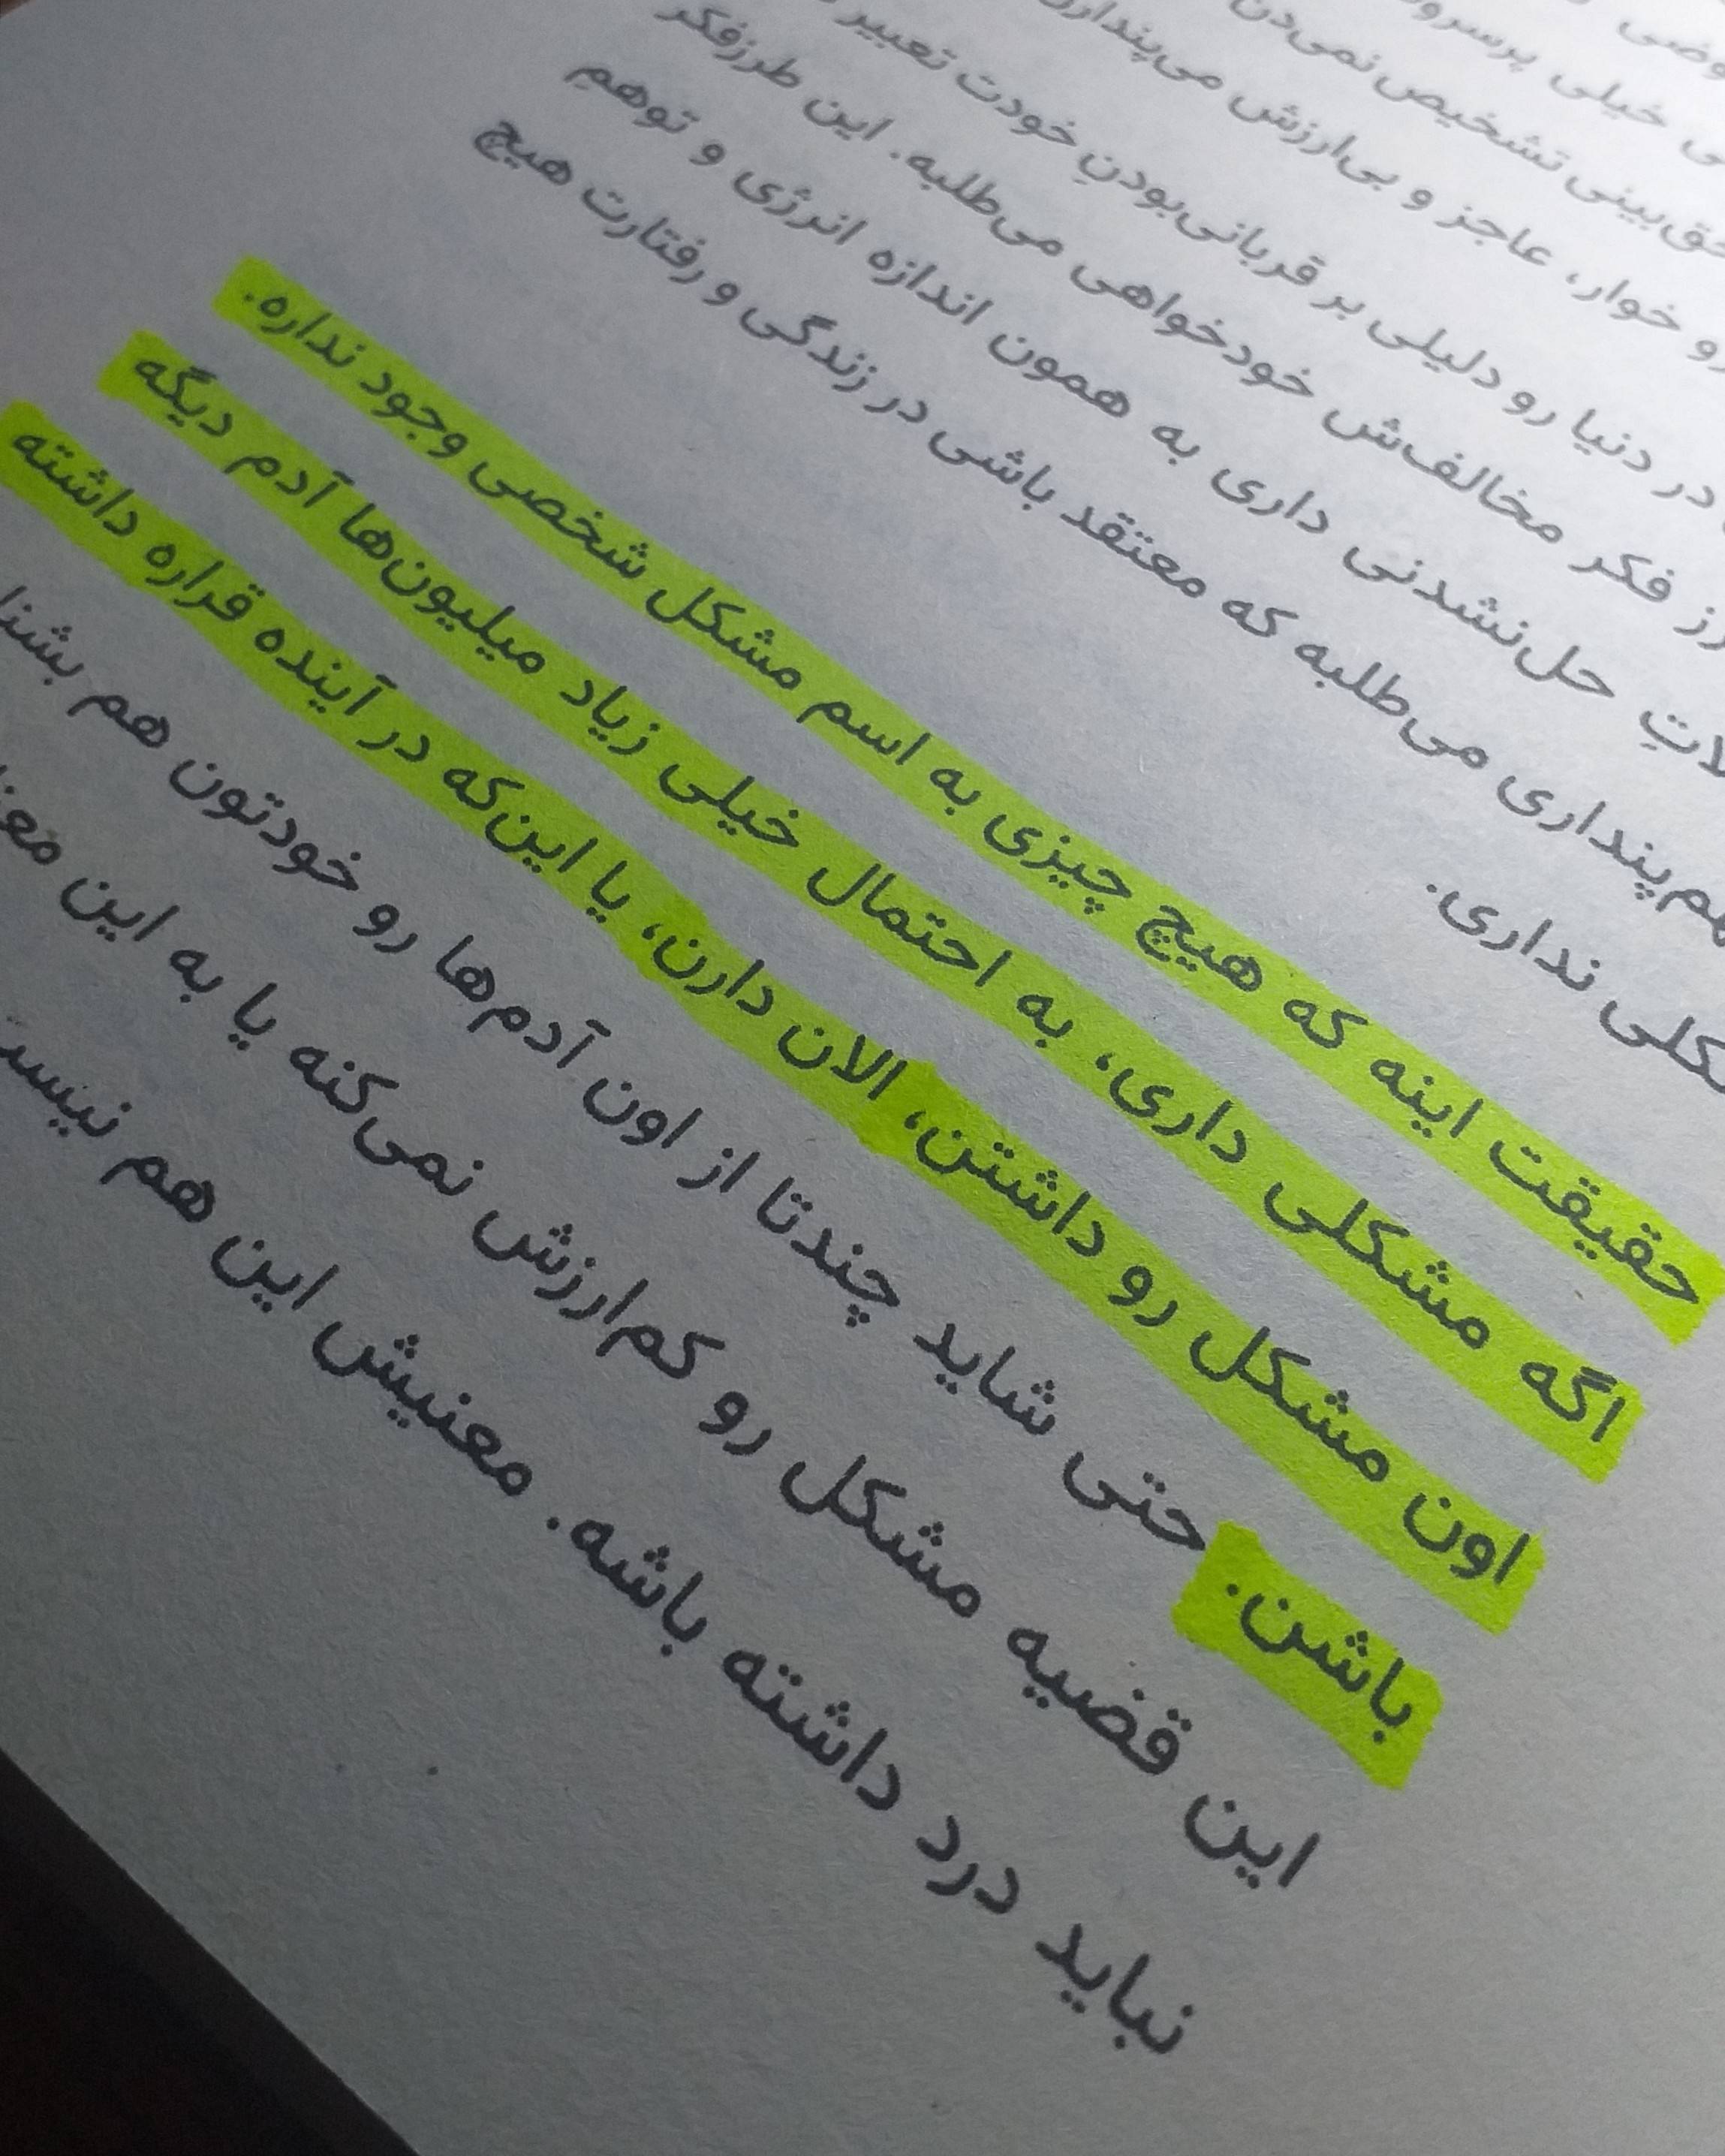 خیلی
حق‌بینی تشخیص نمی‌دن
رو خوار، عاجز و بی‌ارزش
در دنیا رو دلیلی بر قربانی‌بودنِ خودت تعبیر
رز فکر مخالف‌ش خودخواهی می‌طلبه. این طرزفکر
لاتِ حل‌نشدنی داری به همون اندازه انرژی و توهمِ
هم‌پنداری می‌طلبه که معتقد باشی در زندگی و رفتارت هیچ
کلی نداری.
حقیقت اینه که هیچ چیزی به اسم مشکل شخصی وجود نداره.
اگه مشکلی داری، به احتمال خیلی زیاد میلیون‌ها آدم دیگه
اون مشکل رو داشتن، الان دارن، یا این‌که در آینده قراره داشته
باشن. حتی شاید چندتا از اون آدم‌ها رو خودتون هم
این قضیه مشکل رو کم‌ارزش نمی‌کنه یا به این
نباید درد داشته باشه. معنیش این هم